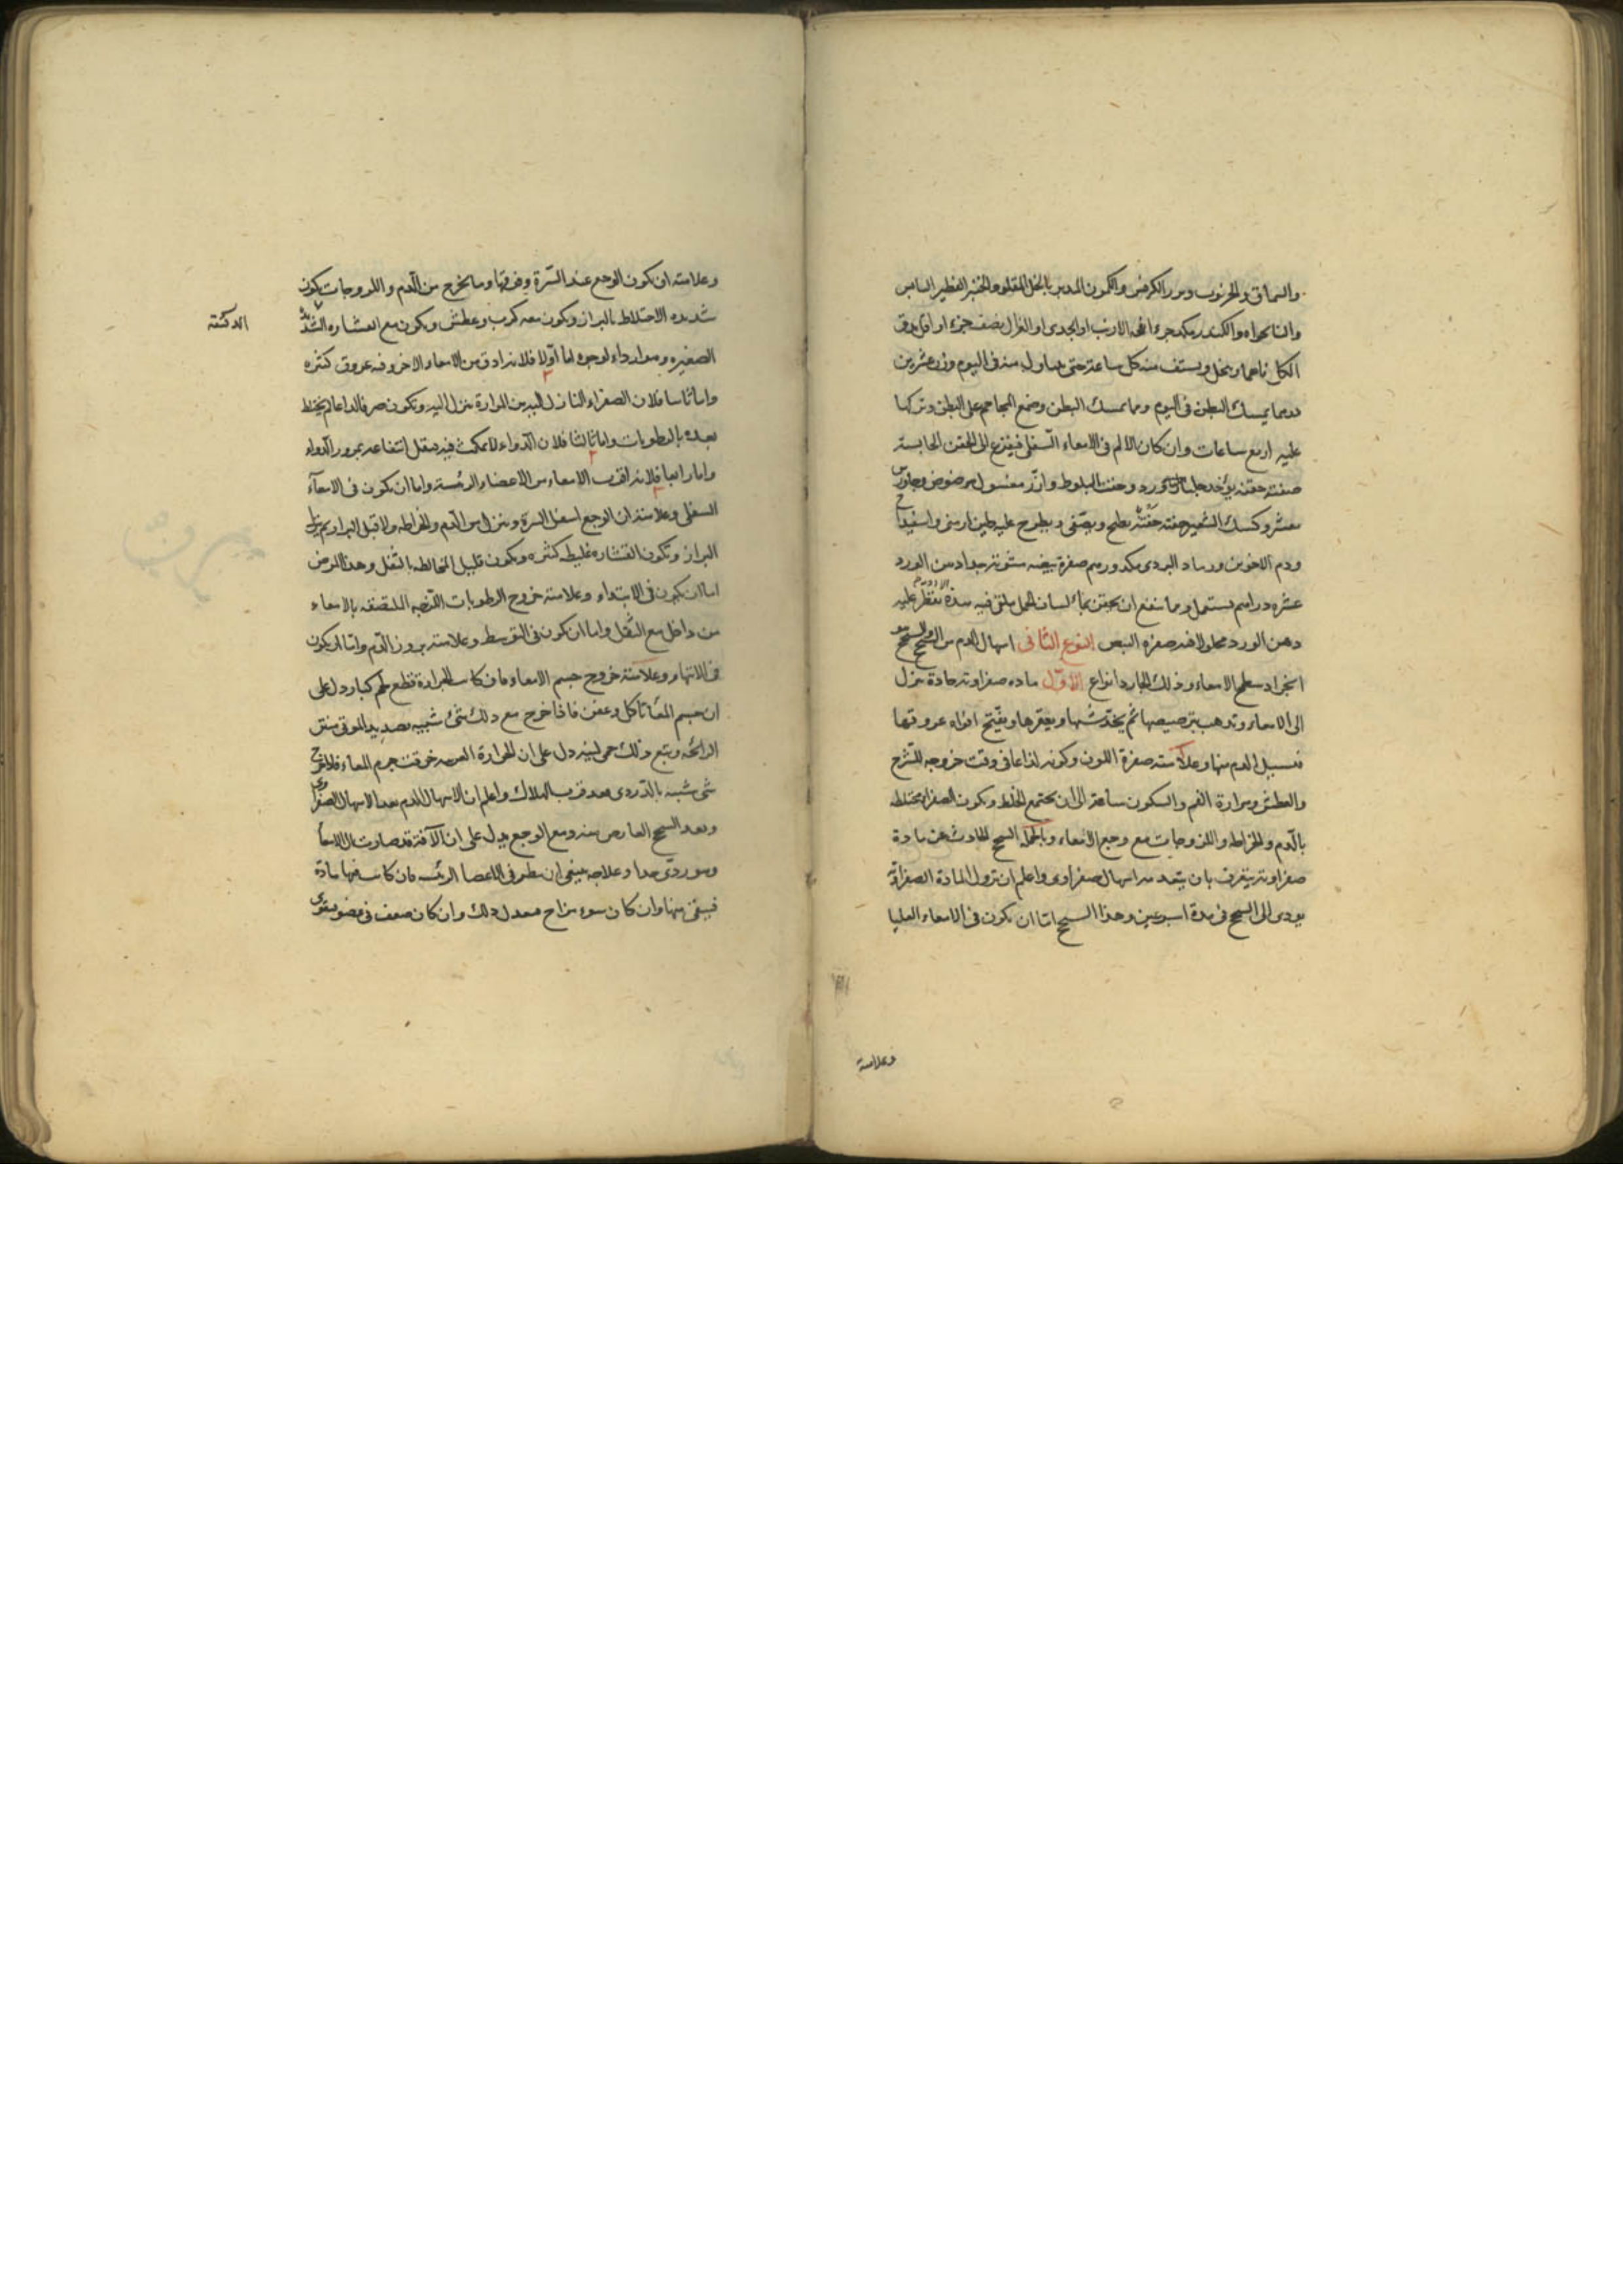 والسماق والخرنوب وبزر الكرفس والكمون المدبر بالخل المقلو والخبز الفطير اليابس
والنانخواه والكندر مكد جزء انفحه الارنب او الجدى او الغزال نصف جزء او اقل يدق
الكل ناعما وينخل ويستف منه كل ساعة حتى يتناول منه فى اليوم وزن عشرين
درهما يمسك البطن فى اليوم ومما يمسك البطن وضع المحاجم على البطن وتركها
عليه اربع ساعات وان كان الالم فى الامعاء السفلى فيفزع الى الحقن الحابسة
صفته حقنه يؤخذ جلنار وورد وجفت البلوط وارز مغسول مرضوض وجاورس
مقشر وكسك الشعير حفنة حفنة يطبخ ويصفى ويطرح عليه طين ارمنى واسفيداج
ودم الاخوين ورماد البردى مكد درهم صفرة بيضه مشوية يداد من الورد
عشره دراهم يستعمل ومما ينفع ان يحتقن بماء لسان الحمل يلقى فيه هذه الادوية يقطر عليه
دهن الورد محلولا فيه صفره البيض النوع الثانى اسهال الدم من السحج والسحج هو
انجراد سطح الامعاء وذلك الجارد انواع الاول ماده صفراوية حادة تنزل
الى الامعاء وتذهب بترصيصها ثم يخدشها ويعقرها ويفتح افواه عروقها
فيسيل الدم منها وعلامته صفرة اللون وكونه لذاعا فى وقت خروجه للشرج
والعطش ومرارة الفم والسكون ساعة الى ان يجتمع الخلط وتكون الصفراء مختلطه
بالدم والخراطه واللزوجات مع وجع الامعاء وبالجملة السحج الحادث عن مادة
صفراوية يعرف بان يتقدمه اسهال صفراوى واعلم ان نزول المادة الصفراوية
يودى الى السحج فى مدة اسبوعين وهذا السحج اما ان يكون فى الامعاء العليا
وعلامته
وعلامته ان يكون الوجع عند السرة وفوقها وما يخرج من الدم واللزوجات يكون
شديده الاختلاط بالبراز ويكون معه كرب وعطش ويكون مع القشاره الشديدة
الصغيره وهو ارداء لوجوه اما اولا فلانه ادق من الامعاء الاخر وفيه عروق كثيره
واما ثانيا فلان الصفراء النازل اليه من المرارة ينزل اليه وتكون صرفا لذاعا لم يختلط
بعده بالرطوبات واما ثالثا فلان الدواء لا يمكث فيه فيقل انتفاعه بمرور الدواء
واما رابعا فلانه اقرب الامعاء من الاعضاء الرئيسة واما ان يكون فى الامعآء
السفلى وعلامته ان الوجع اسفل السرة وينزل من الدم والخراطه والا قبل البراز ثم ينزل
البراز وتكون القشاره غليظه كثيره ويكون قليل المخالطه بالثفل وهذا المرض
اما ان يكون فى الابتداء وعلامته خروج الرطوبات اللزجه الملتصقه بالامعاء
من داخل مع الثفل واما ان يكون فى التوسط وعلامته بروز الدم واما ان يكون
فى الانتهاء وعلامته خروج جسم الامعاء فان كانت الجرادة قطع لحم كبار دل على
ان جسم المعا تاكل وعفن فاذا خرج مع ذلك شئ شبيه بصديد الموتى منتن
الرائحه ويتبع ذلك حمى لينه دل على ان الحرارة الغريبه خرقت جرم المعاء فلا يخرج
شى شبيه بالدردى بعد قرب الهلاك واعلم ان الاسهال الدم بعد الاسهال الصفراوى
وبعد السحج العارض منه ومع الوجع يدل على ان الآفة قد صارت الى الامعاء
وهو ردى جدا وعلاجه ينبغى ان ينظر فى الاعضا الرئيسه فان كانت فيها مادة
فينقى منها وان كان سوء مزاج معدل ذلك وان كان ضعف فى عضو يقوى
الدكنة